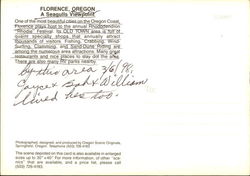 FLORENCE, OREGON
A Seagulls Viewpoint
One of the most beautiful cities on the Oregon Coast,
Florence plays host to the annual Rhododendron
"Rhodie" Festival. Its OLD TOWN area is full of
quaint specialty shops that annually attract
thousands of visitors. Fishing, Crabbing, Wind-
Surfing, Clamming, and Sand-Dune Riding are
among the numerous area attractions. Many great
restaurants and nice places to stay dot the area.
There are also many RV parks nearby.
by this area 3/6/96
& William
lived here too.
Photographed, designed, and produced by Oregon Scene Originals,
Springfield, Oregon. Telephone (503) 726-
The scene depicted on this card is also available in enlarged
sizes up to 30" x 40". For more information, of other "sce-
nics" that are available, and a price list, please call: (503)